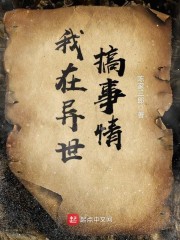 我在异世
搞事情
起点中文网